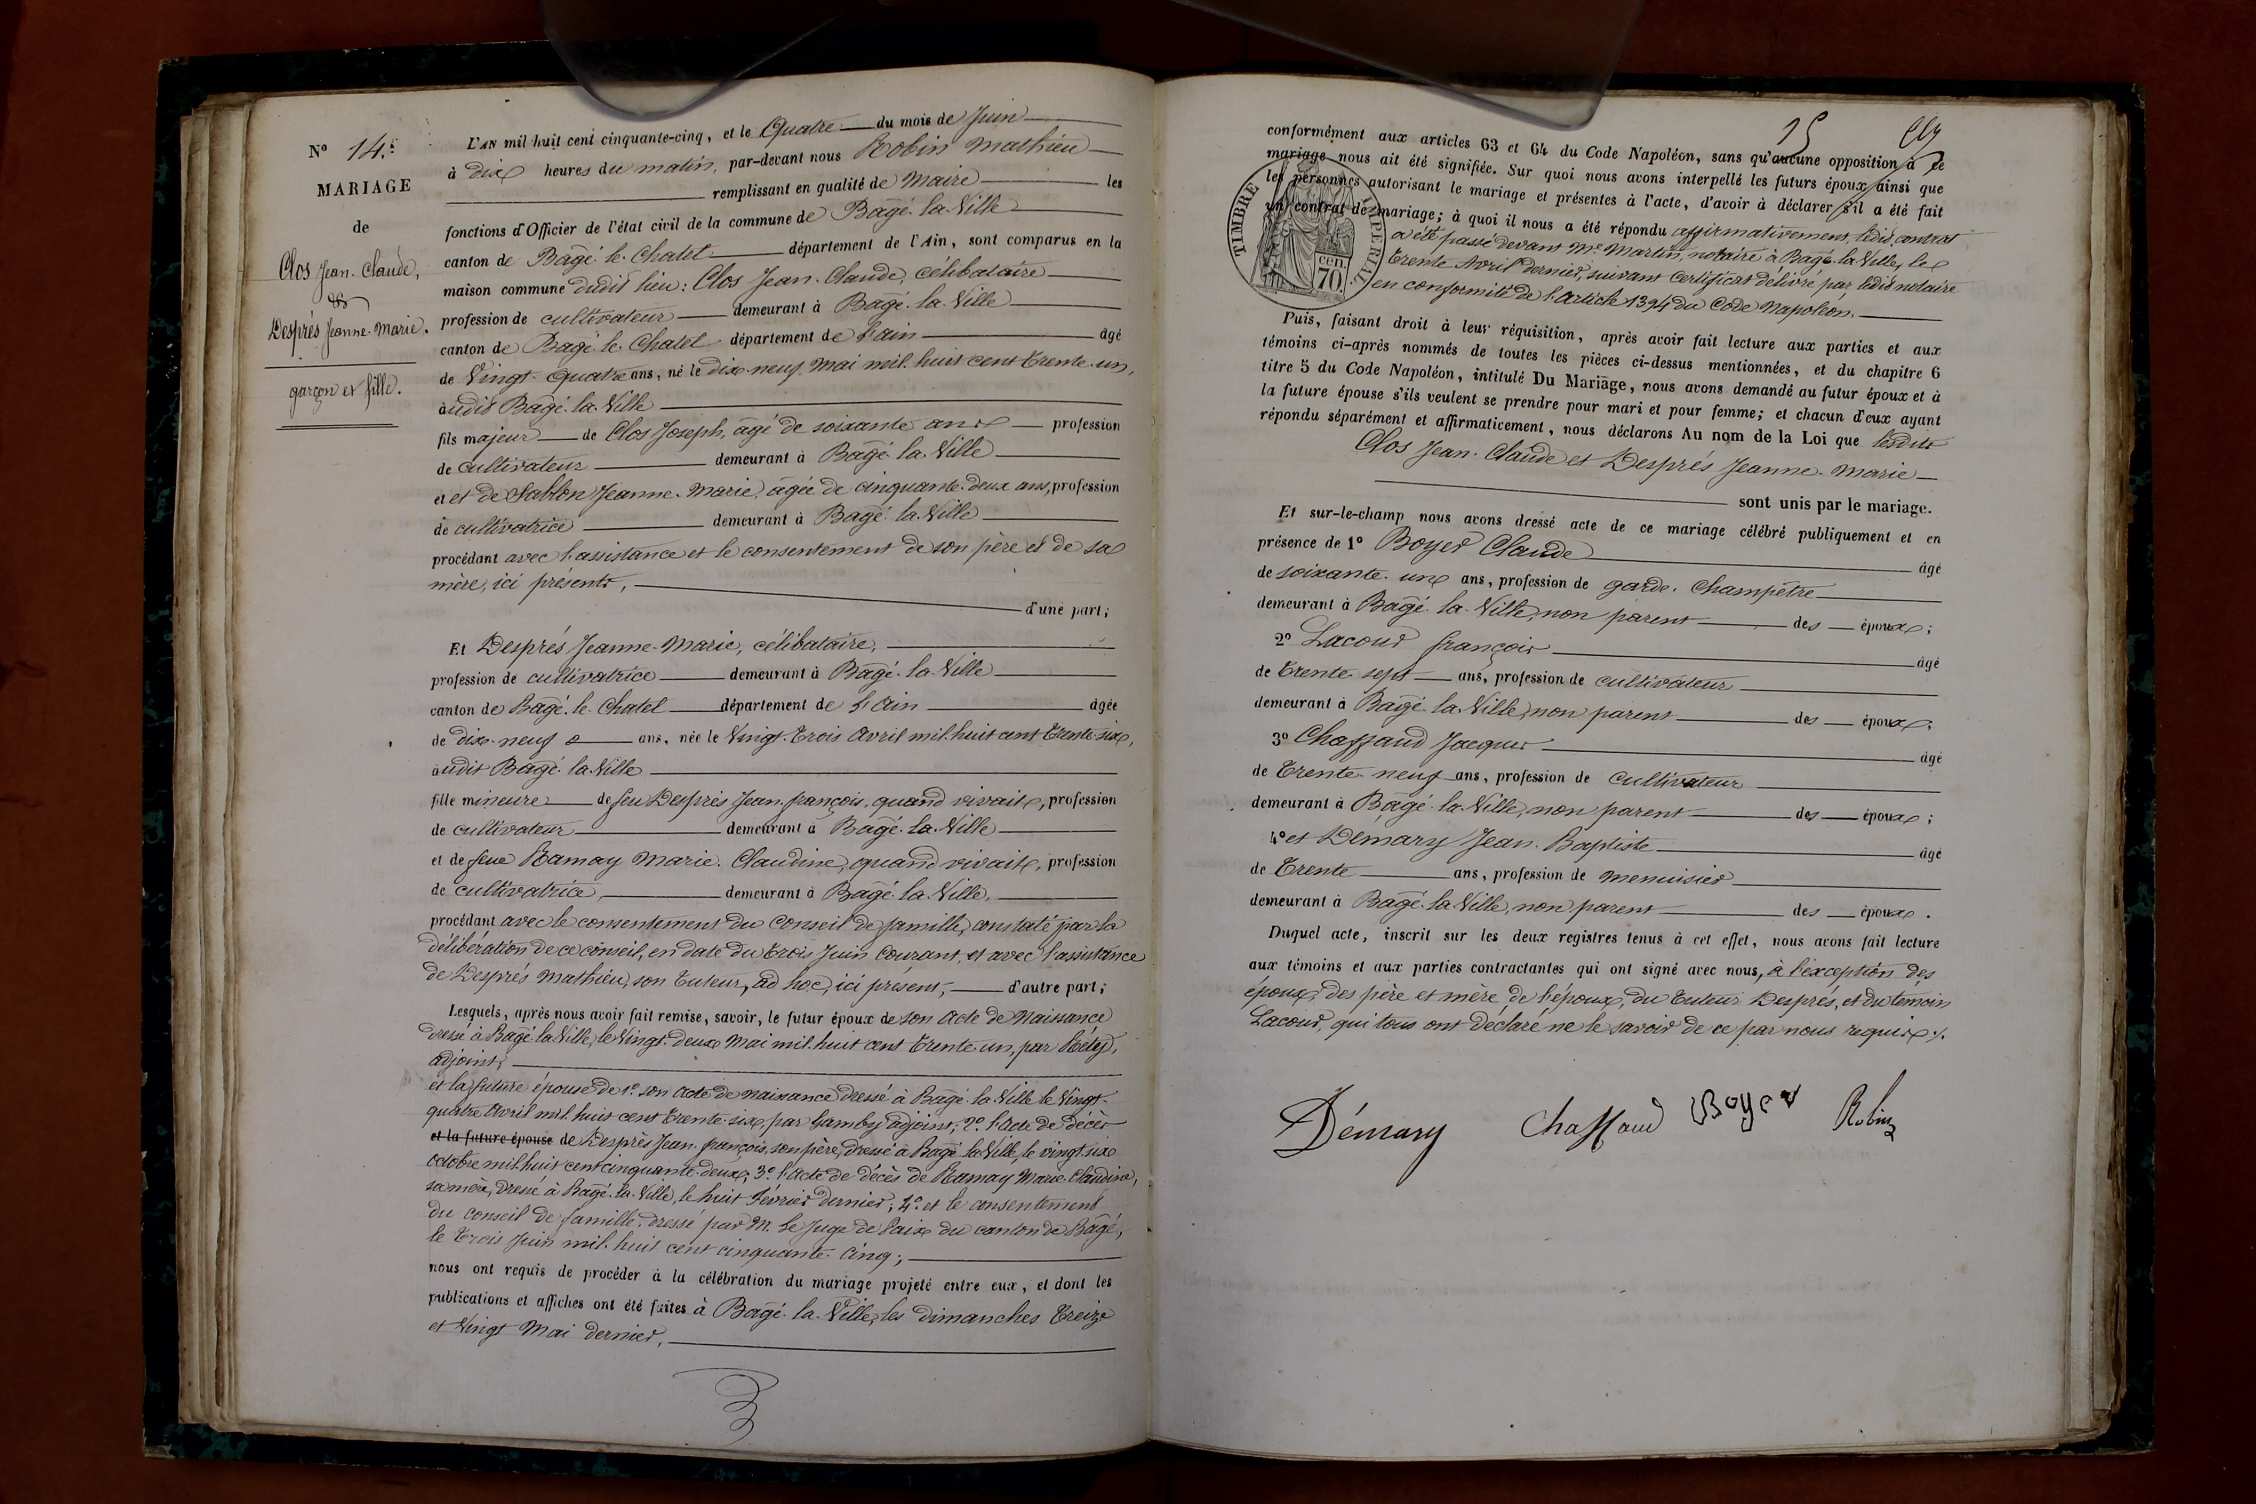 N° 14.e
MARIAGE
de
Clos Jean-Claude,
&
Desprès Jeanne-Marie.
garçon et fille.
L'AN mil huit cent cinquante-cinq, et le Quatre du mois de Juin
à dix heures du matin, par-devant nous Robin Mathieu
remplissant en qualité de Maire les
fonctions d'Officier de l'état civil de la commune de Bâgé-la-Ville
canton de Bâgé-le-Chatel département de l'Ain, sont comparus en la
maison commune dudit lieu : Clos Jean-Claude, célibataire
profession de cultivateur demeurant à Bâgé-la-Ville
canton de Bâgé-le-Chatel département de l'ain âgé
de Vingt-Quatre ans, né le dix-neuf Mai mil-huit cent Trente-un,
audit Bâgé-la-Ville
fils majeur de Clos Joseph, âgé de soixante ans profession
de cultivateur demeurant à Bâgé-la-Ville
et et de Sablon Jeanne-Marie, âgée de cinquante-deux ans, profession
de cultivatrice demeurant à Bâgé-la-Ville
procédant avec l'assistance et le consentement de son père et de sa
mère, ici présents, d'une part;
Et Desprès Jeanne-Marie, célibataire,
profession de cultivatrice demeurant à Bâgé-la-Ville
canton de Bâgé-le-Chatel département de l'Ain âgée
de dix-neuf ans, née le Vingt-Trois Avril mil-huit cent Trente-six,
audit Bâgé-la-Ville
fille mineure de feu Desprès Jean-françois, quand vivait, profession
de cultivateur demeurant à Bâgé-la-Ville
et de feue Ramay Marie-Claudine, quand vivait, profession
de cultivatrice, demeurant à Bâgé-la-Ville,
procédant avec le consentement du Conseil de famille, constaté par la
délibération de ce conseil, en date du trois Juin courant, et avec l'assistance
de Desprès Mathieu, son Tuteur, ad hoc, ici présent, d'autre part;
Lesquels, après nous avoir fait remise, savoir, le futur époux de son Acte de Naissance
dressé à Bâgé-la-Ville, le Vingt-deux Mai mil-huit cent Trente-un, par
adjoint;
et la future épouse de 1° son Acte de naissance dressé à Bâgé-la-Ville le Vingt-
quatre Avril mil-huit cent trente-six, par Gamby adjoint; 2° l'Acte de décès
et la future épouse de Desprès Jean-françois, son père, dressé à Bâgé-la-Ville, le vingt-six
octobre mil-huit cent cinquante-deux; 3° l'Acte de décès de Ramay Marie-Claudine,
sa mère, dressé à Bâgé-la-Ville, le huit Février dernier; 4° et le consentement
du conseil de famille dressé par M. le Juge de Paix du canton de Bâgé,
le Trois Juin mil-huit cent cinquante-cinq;
nous ont requis de procéder à la célébration du mariage projeté entre eux, et dont les
publications et affiches ont été faites à Bâgé-la-Ville, les dimanches Treize
et Vingt Mai dernier,
15
conformément aux articles 63 et 64 du Code Napoléon, sans qu'aucune opposition à ce
mariage nous ait été signifiée. Sur quoi nous avons interpellé les futurs époux ainsi que
les personnes autorisant le mariage et présentes à l'acte, d'avoir à déclarer s'il a été fait
un contrat de mariage; à quoi il nous a été répondu affirmativement, ledit contrat
a été passé devant Me Martin, notaire à Bâgé-la-Ville, le
trente Avril dernier, suivant certificat délivré par ledit notaire
en conformité de l'Article 1394 du Code Napoléon.
TIMBRE IMPERIAL
cen.
70.
Puis, faisant droit à leur réquisition, après avoir fait lecture aux parties et aux
témoins ci-après nommés de toutes les pièces ci-dessus mentionnées, et du chapitre 6
titre 5 du Code Napoléon, intitulé Du Mariage, nous avons demandé au futur époux et à
la future épouse s'ils veulent se prendre pour mari et pour femme; et chacun d'eux ayant
répondu séparément et affirmativement, nous déclarons Au nom de la Loi que lesdits
Clos Jean-Claude et Desprès Jeanne-Marie
sont unis par le mariage.
Et sur-le-champ nous avons dressé acte de ce mariage célébré publiquement et en
présence de 1° Boyer Claude âgé
de soixante-un ans, profession de garde-Champêtre
demeurant à Bâgé-la-Ville, non parent des époux;
2° Lacour françois âgé
de trente-sept ans, profession de cultivateur
demeurant à Bâgé-la-Ville, non parent des époux;
3° Chaffaud Jacques âgé
de Trente-neuf ans, profession de cultivateur
demeurant à Bâgé-la-Ville, non parent des époux;
4° et Démary Jean-Baptiste âgé
de Trente ans, profession de menuisier
demeurant à Bâgé-la-Ville, non parent des époux.
Duquel acte, inscrit sur les deux registres tenus à cet effet, nous avons fait lecture
aux témoins et aux parties contractantes qui ont signé avec nous, à l'exception des
époux, des père et mère de l'époux, du Tuteur Desprès, et du témoin
Lacour, qui tous ont déclaré ne le savoir de ce par nous requis.
Démary Chaffaud Boyer Robin